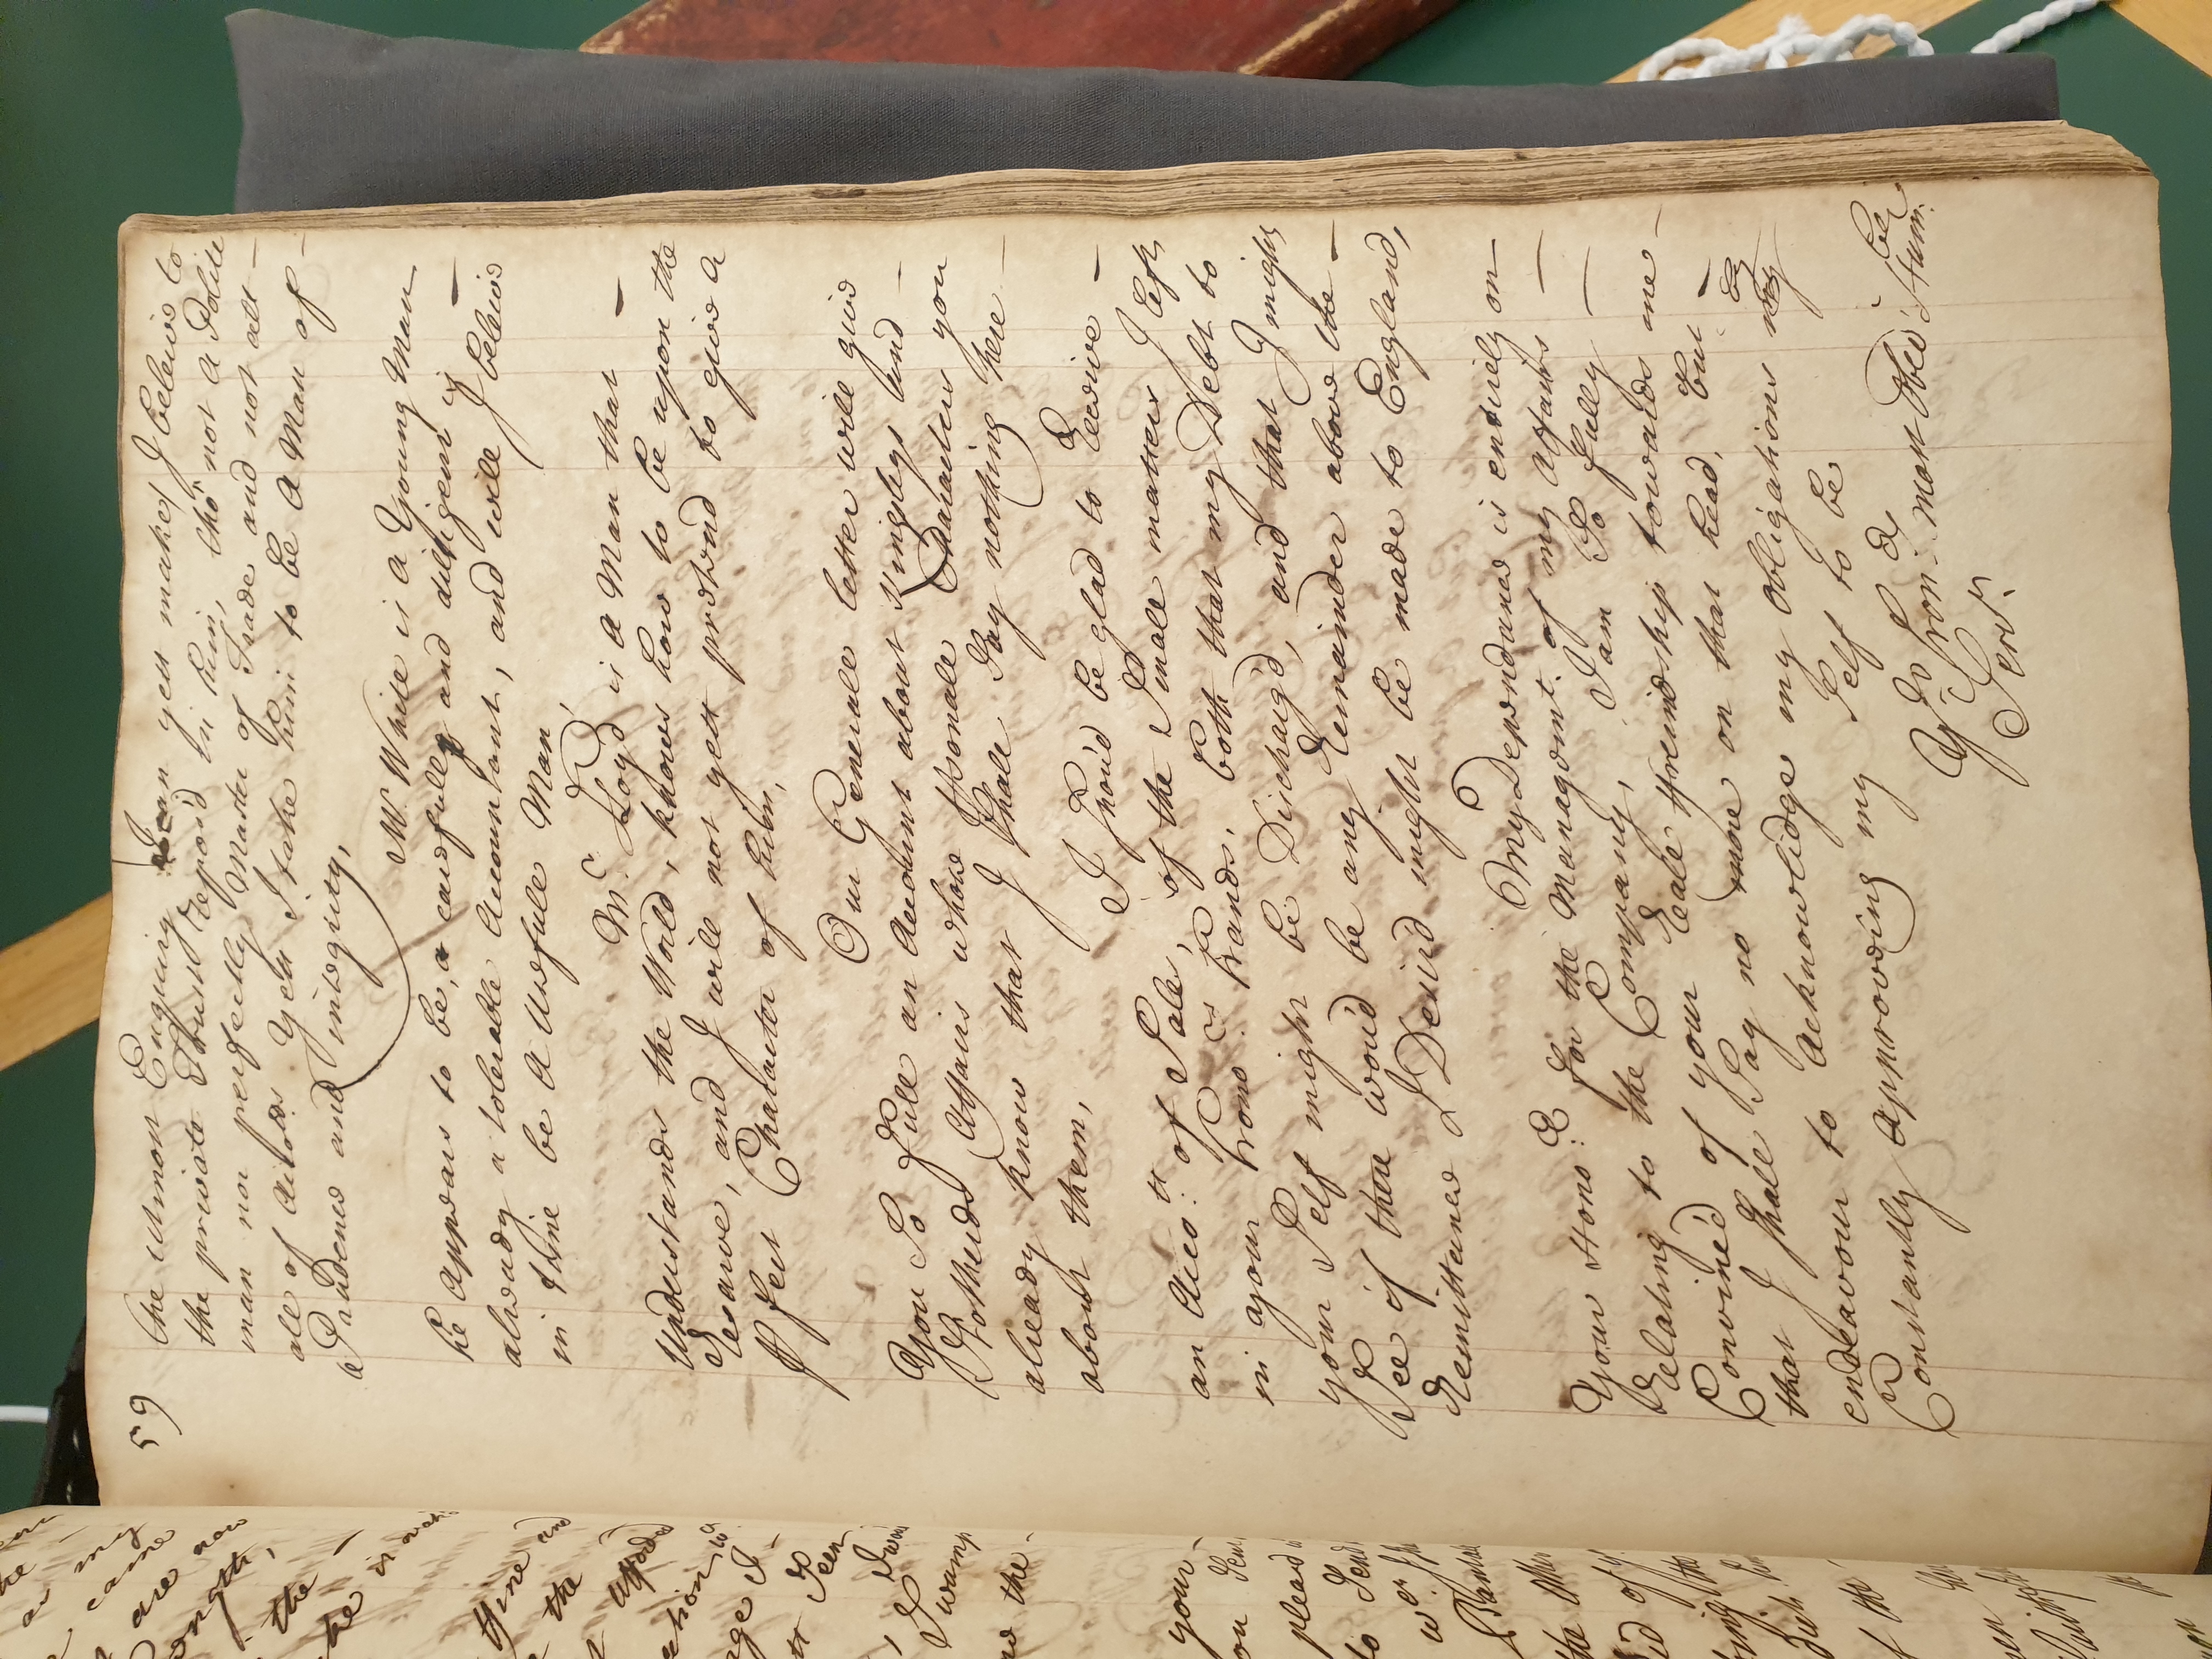 59
the utmost Enquiry I can yett make, I beleive to
the private Trust repos'd in him, tho' not a Polite
man nor perfectly Master of Trade and not att
all of Airs Yett I take him to be a Man of
Prudence and integrity,
Mr. White is a Young Man
he appears to be, a carefull and diligent is
already a tolerable Accountant, and will I beleive
in time be a Usefull Man,
Mr. Loyd is a Man that
Understands the World, knows how to be upon the
Reserve, and I will not yett pretend to give a
Character of him,
Our Generall letter will give
You So full an Account about Kinglys and
Affairs whose Personall Characters you
already know that I shall Say nothing here
about them,
I Shou'd be glad to receive
an Acco.tt of Sale, of the Small matters I left
in your Hono.rs hands, both that my Debt to
your Self might be Discharg'd, and that I might
See if there wou'd be any Remainder above the
Remittance I Desir'd might be made to England,
My Dependance is entirely on
Your Hono.r for the Managem.t of my Affairs
Relating to the Company, I am So fully
Convinc'd of your Reall Freindship towards me
that I shall Say no more on that head, but
endeavour to Acknowledge my obligations by
Constantly approveing my Self to be
Yr. Hon.rs most Obed.t Hum.
Serv.t
your
pleas'd
Swamp
the